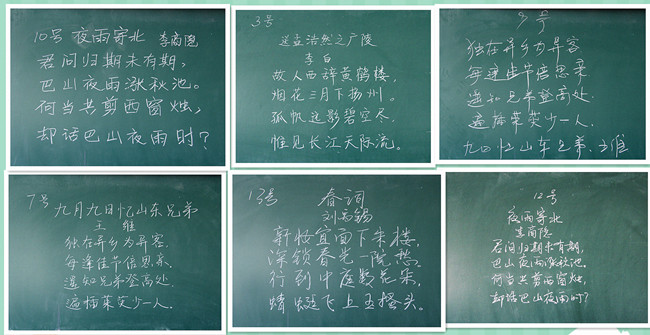 10号 夜雨寄北 李商隐
君问归期未有期，
巴山夜雨涨秋池。
何当共剪西窗烛，
却话巴山夜雨时？
3号
送孟浩然之广陵
李白
故人西辞黄鹤楼，
烟花三月下扬州。
孤帆远影碧空尽，
惟见长江天际流。
号
独在异乡为异客
每逢佳节倍思亲
遥知兄弟登高处
遍插茱萸少一人.
九日忆山东兄弟.王维
7号
九月九日忆山东兄弟
王 维
独在异乡为异客.
每逢佳节倍思亲.
遥知兄弟登高处.
遍插茱萸少一人.
13号 春词
刘禹锡
新妆宜面下朱楼，
深锁春光一院愁.
行到中庭数花朵，
蜻蜓飞上玉搔头。
12号
夜雨寄北
李商隐
君问归期未有期，
巴山夜雨涨秋池.
何当共剪西窗烛，
却话巴山夜雨时?